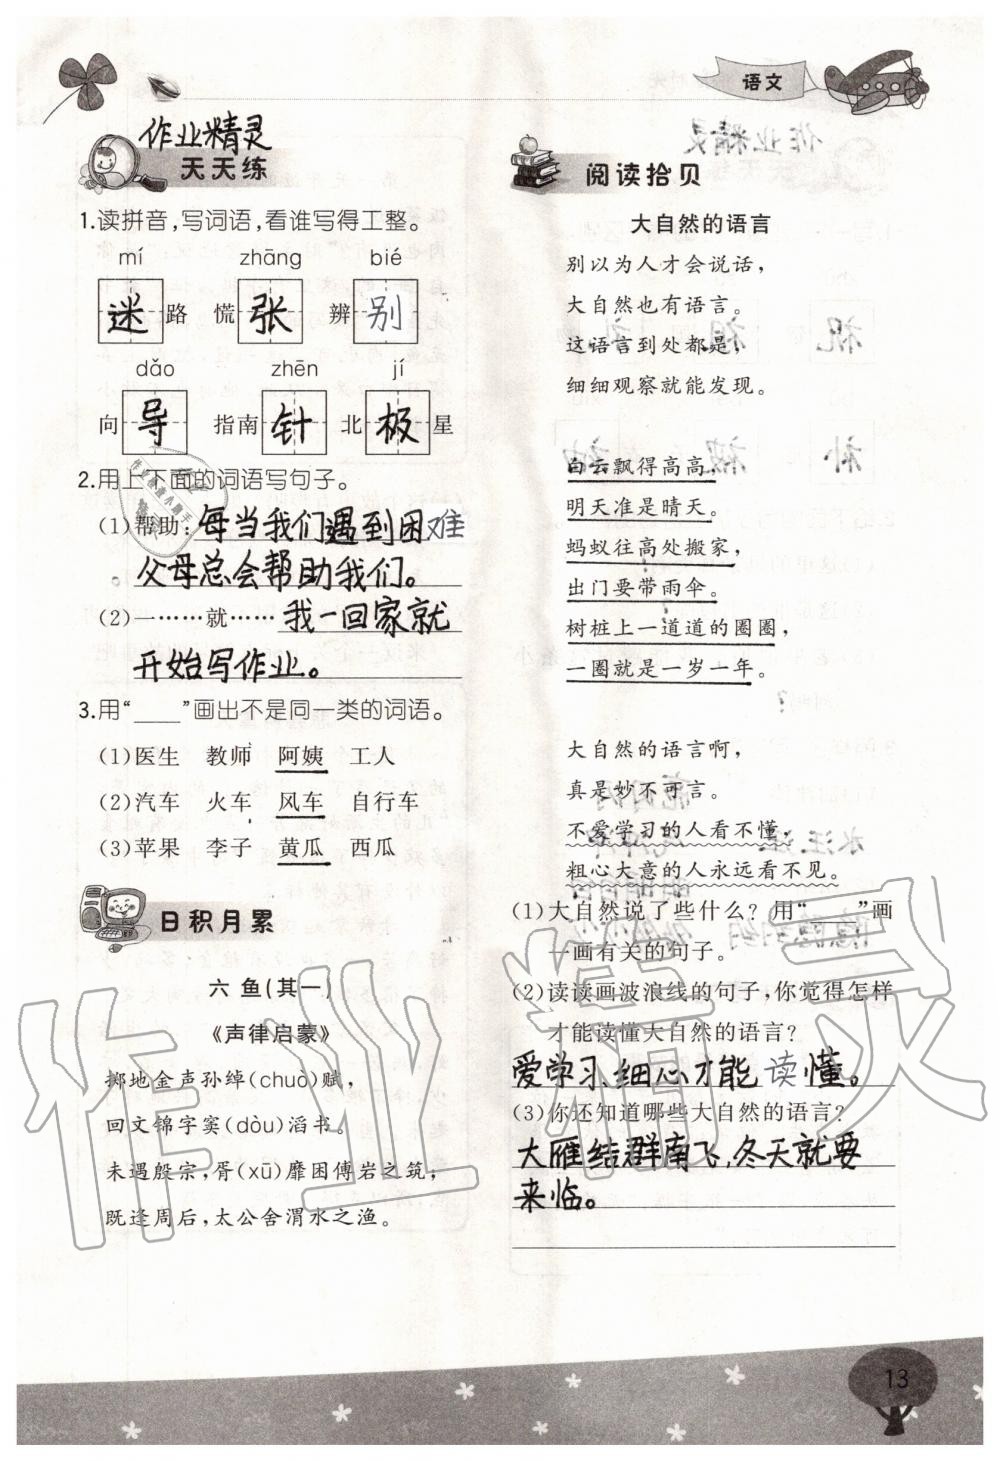 语文
作业精灵
天天练
1.读拼音,写词语,看谁写得工整。
mí zhāng bié
迷路 慌张 辨别
dǎo zhēn jí
向导 指南针 北极星
2.用上下面的词语写句子。
(1)帮助:每当我们遇到困难
父母总会帮助我们。
(2)一……就……我一回家就
开始写作业。
3.用“____”画出不是同一类的词语。
(1)医生 教师 阿姨 工人
(2)汽车 火车 风车 自行车
(3)苹果 李子 黄瓜 西瓜
日积月累
六 鱼(其一)
《声律启蒙》
掷地金声孙绰(chuò)赋,
回文锦字窦(dòu)滔书。
未遇殷宗,胥(xū)靡困傅岩之筑;
既逢周后,太公舍渭水之渔。
作业精灵
阅读拾贝
大自然的语言
别以为人才会说话,
大自然也有语言。
这语言到处都是,
细细观察就能发现。
白云飘得高高,
明天准是晴天。
蚂蚁往高处搬家,
出门要带雨伞。
树桩上一道道的圈圈,
一圈就是一岁一年。
大自然的语言啊,
真是妙不可言。
不爱学习的人看不懂,
粗心大意的人永远看不见。
(1)大自然说了些什么?用“____”画
一画有关的句子。
(2)读读画波浪线的句子,你觉得怎样
才能读懂大自然的语言?
爱学习,细心才能读懂。
(3)你还知道哪些大自然的语言?
大雁结群南飞,冬天就要
来临。
作业精灵
13